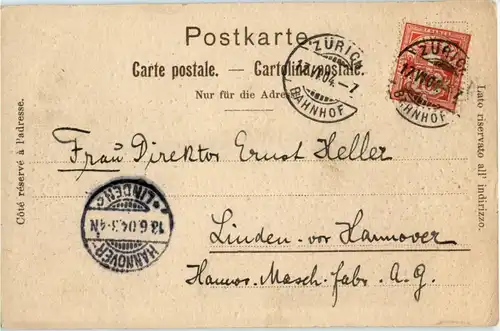 Postkarte.
Carte postale. — Cartolina postale.
Nur für die Adresse.
Côté réservé à l'adresse.
Lato riservato all' indirizzo.
ZÜRICH
BAHNHOF
ZÜRICH
BAHNHOF
Frau Direktor Ernst Heller
Linden-vor Hannover
Hannov. Masch. fabr. A. G.
LINDEN
13.6.04.3-4N
HANNOVER